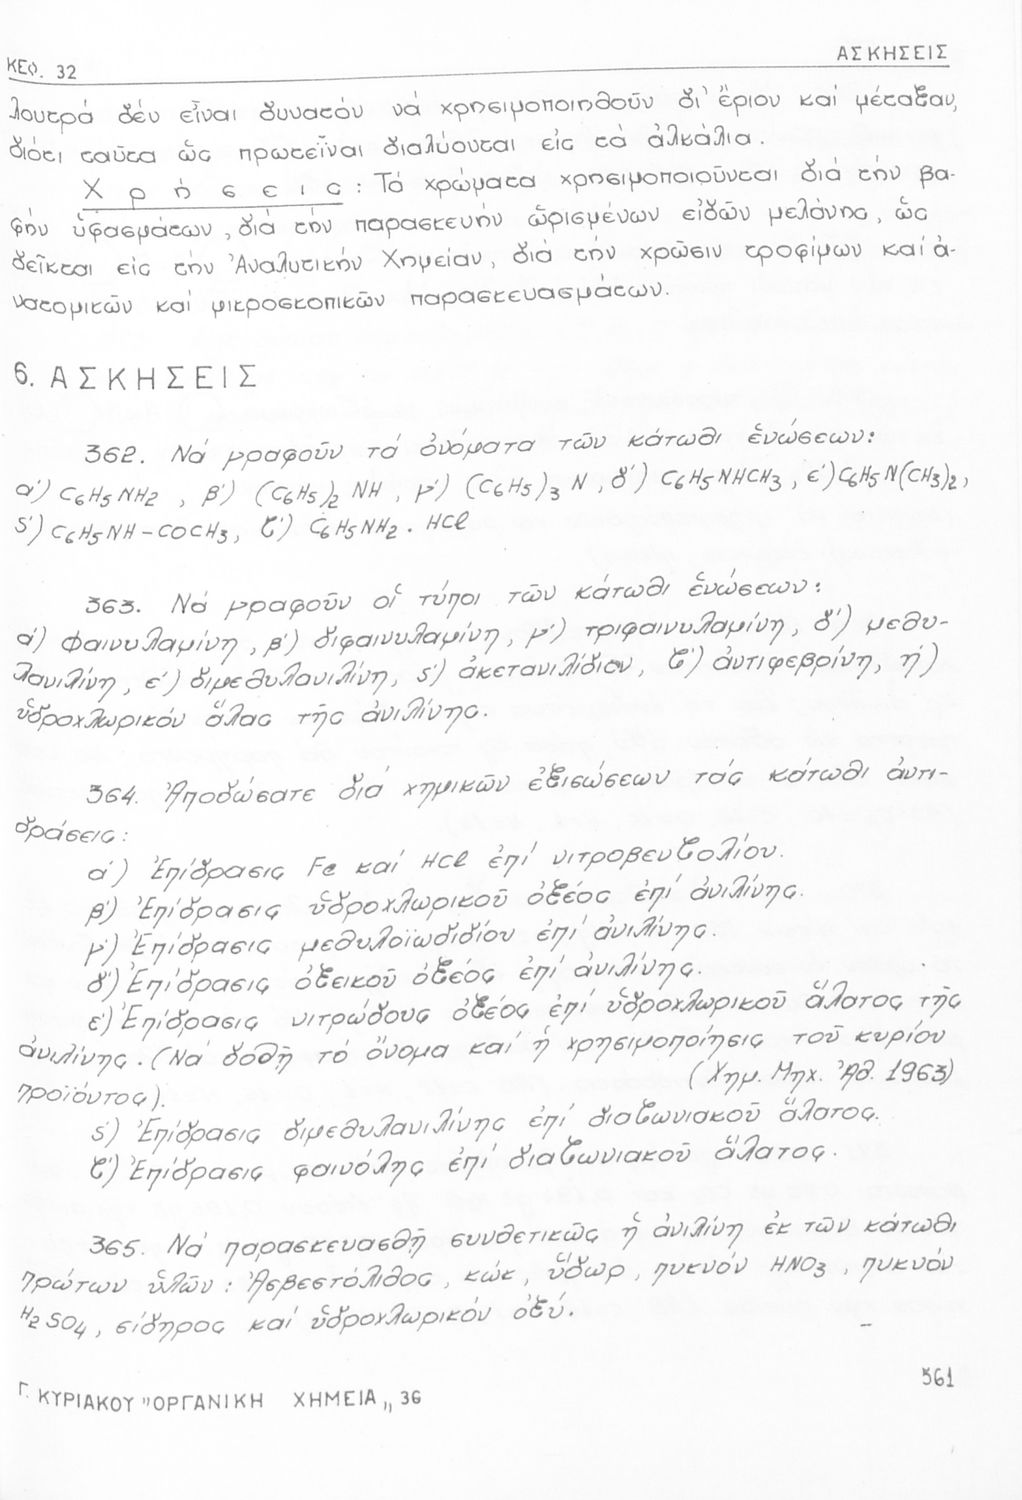 ΚΕΦ. 32
ΑΣΚΗΣΕΙΣ
λουτρά δέν εἶναι δυνατόν νά χρησιμοποιηθοῦν δι' ἔριον καί μέταξαν,
διότι ταῦτα ὡς πρωτεΐναι διαλύονται εἰς τά ἀλκάλια.
Χρήσεις: Τά χρώματα χρησιμοποιοῦνται διά τήν βα-
φήν ὑφασμάτων, διά τήν παρασκευήν ὡρισμένων εἰδῶν μελάνης, ὡς
δεῖκται εἰς τήν Ἀναλυτικήν Χημείαν, διά τήν χρῶσιν τροφίμων καί ἀ-
νατομικῶν καί μικροσκοπικῶν παρασκευασμάτων.
6. ΑΣΚΗΣΕΙΣ
362. Νά γραφοῦν τά ὀνόματα τῶν κάτωθι ἑνώσεων:
α') C6H5NH2, β') (C6H5)2 NH, γ') (C6H5)3 N, δ') C6H5NHCH3, ε') C6H5N(CH3)2,
ς') C6H5NH-COCH3, ζ') C6H5NH2. HCl
363. Νά γραφοῦν οἱ τύποι τῶν κάτωθι ἑνώσεων:
α') Φαινυλαμίνη, β') διφαινυλαμίνη, γ') τριφαινυλαμίνη, δ') μεθυ-
λανιλίνη, ε') διμεθυλανιλίνη, ς') ἀκετανιλίδιον, ζ') ἀντιφεβρίνη, η')
ὑδροχλωρικόν ἅλας τῆς ἀνιλίνης.
364. Ἀποδώσατε διά χημικῶν ἐξισώσεων τάς κάτωθι ἀντι-
δράσεις:
α') Ἐπίδρασις Fe καί HCl ἐπί νιτροβενζολίου.
β') Ἐπίδρασις ὑδροχλωρικοῦ ὀξέος ἐπί ἀνιλίνης.
γ') Ἐπίδρασις μεθυλοϊωδιδίου ἐπί ἀνιλίνης.
δ') Ἐπίδρασις ὀξεικοῦ ὀξέος ἐπί ἀνιλίνης.
ε') Ἐπίδρασις νιτρώδους ὀξέος ἐπί ὑδροχλωρικοῦ ἅλατος τῆς
ἀνιλίνης. (Νά δοθῇ τό ὄνομα καί ἡ χρησιμοποίησις τοῦ κυρίου
προϊόντος). (Χημ. Μηχ. Ἀθ. 1963)
ς') Ἐπίδρασις διμεθυλανιλίνης ἐπί διαζωνιακοῦ ἅλατος.
ζ') Ἐπίδρασις φαινόλης ἐπί διαζωνιακοῦ ἅλατος.
365. Νά παρασκευασθῇ συνθετικῶς ἡ ἀνιλίνη ἐκ τῶν κάτωθι
πρώτων ὑλῶν: Ἀσβεστόλιθος, κώκ, ὕδωρ, πυκνόν HNO3, πυκνόν
H2SO4, σίδηρος καί ὑδροχλωρικόν ὀξύ.
561
Γ. ΚΥΡΙΑΚΟΥ "ΟΡΓΑΝΙΚΗ ΧΗΜΕΙΑ" 36